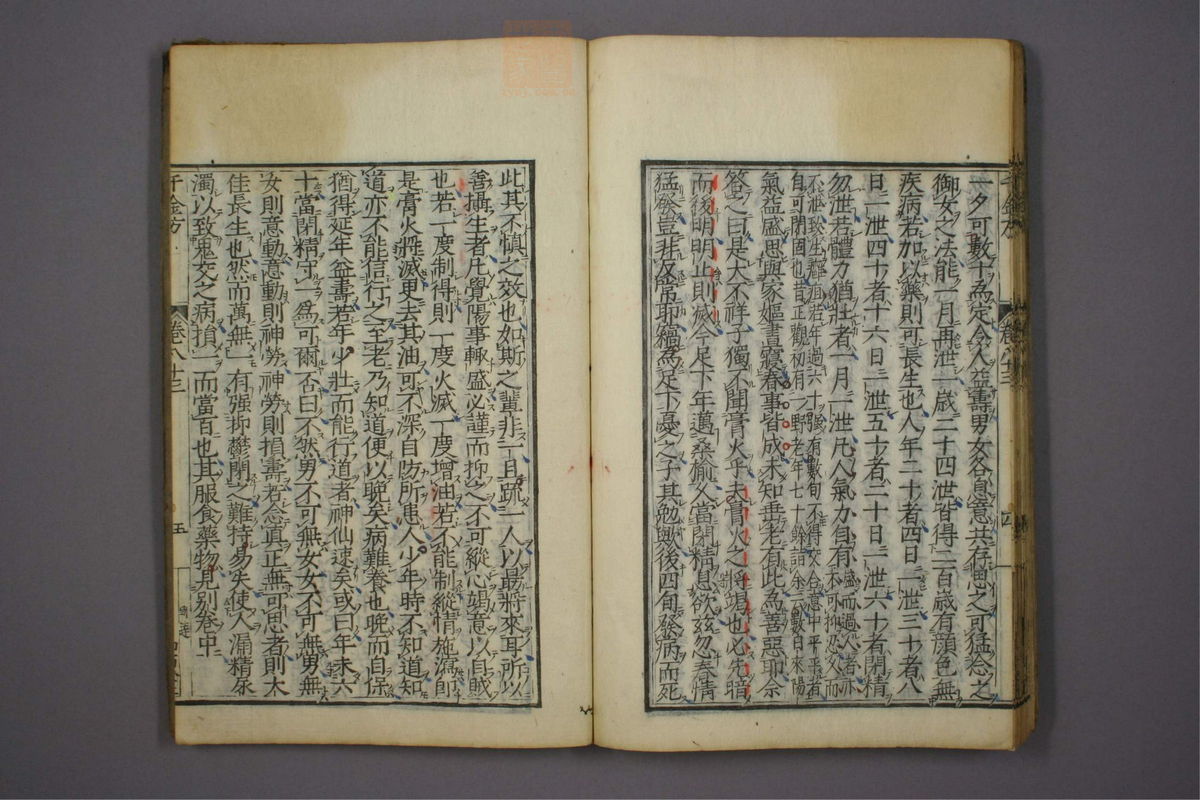 一夕可數十爲定令人益壽男女各息意共存思之可猛念之
御女之法能一月再泄一歲二十四泄皆得二百歲有顔色無
疾病若加以藥則可長生也人年二十者四日一泄三十者八
日一泄四十者十六日一泄五十者二十日一泄六十者閉精
勿泄若體力猶壯者一月一泄凡人氣力自有盛而過人者亦
不可抑忍久而
不泄致生癰疽若年過六十強有數旬不得交合意中平平者
自可閉固也昔正觀初有一野老年七十餘詣余云數日來陽
氣益盛思與家嫗晝寢春事皆成未知垂老有此爲善惡耶余
答之曰是大不祥子獨不聞膏火乎夫膏火之將竭也必先暗
而後明明止則滅今足下年邁桑榆久當閉精息欲玆忽春情
猛發豈非反常耶竊爲足下憂之子其勉歟後四旬發病而死
此其不慎之效也如斯之輩非一且疏一人以最將來耳所以
善攝生者凡覺陽事輒盛必謹而抑之不可縱心竭意以自賊
也若一度制得則一度火滅一度增油若不能制縱情施瀉即
是膏火將滅更去其油可不深自防所患人少年時不知道知
道亦不能信行之至老乃知道便以晩矣病難養也晩而自保
猶得延年益壽若年少壯而能行道者神仙速矣或曰年未六
十當閉精守一爲可爾否曰不然男不可無女女不可無男無
女則意動意動則神勞神勞則損壽若念眞正無可思者則大
佳長生也然而萬無一有強抑鬱閉之難持易失使人漏精尿
濁以致鬼交之病損一而當百也其服食藥物見別卷中
千金方
卷八十三
五